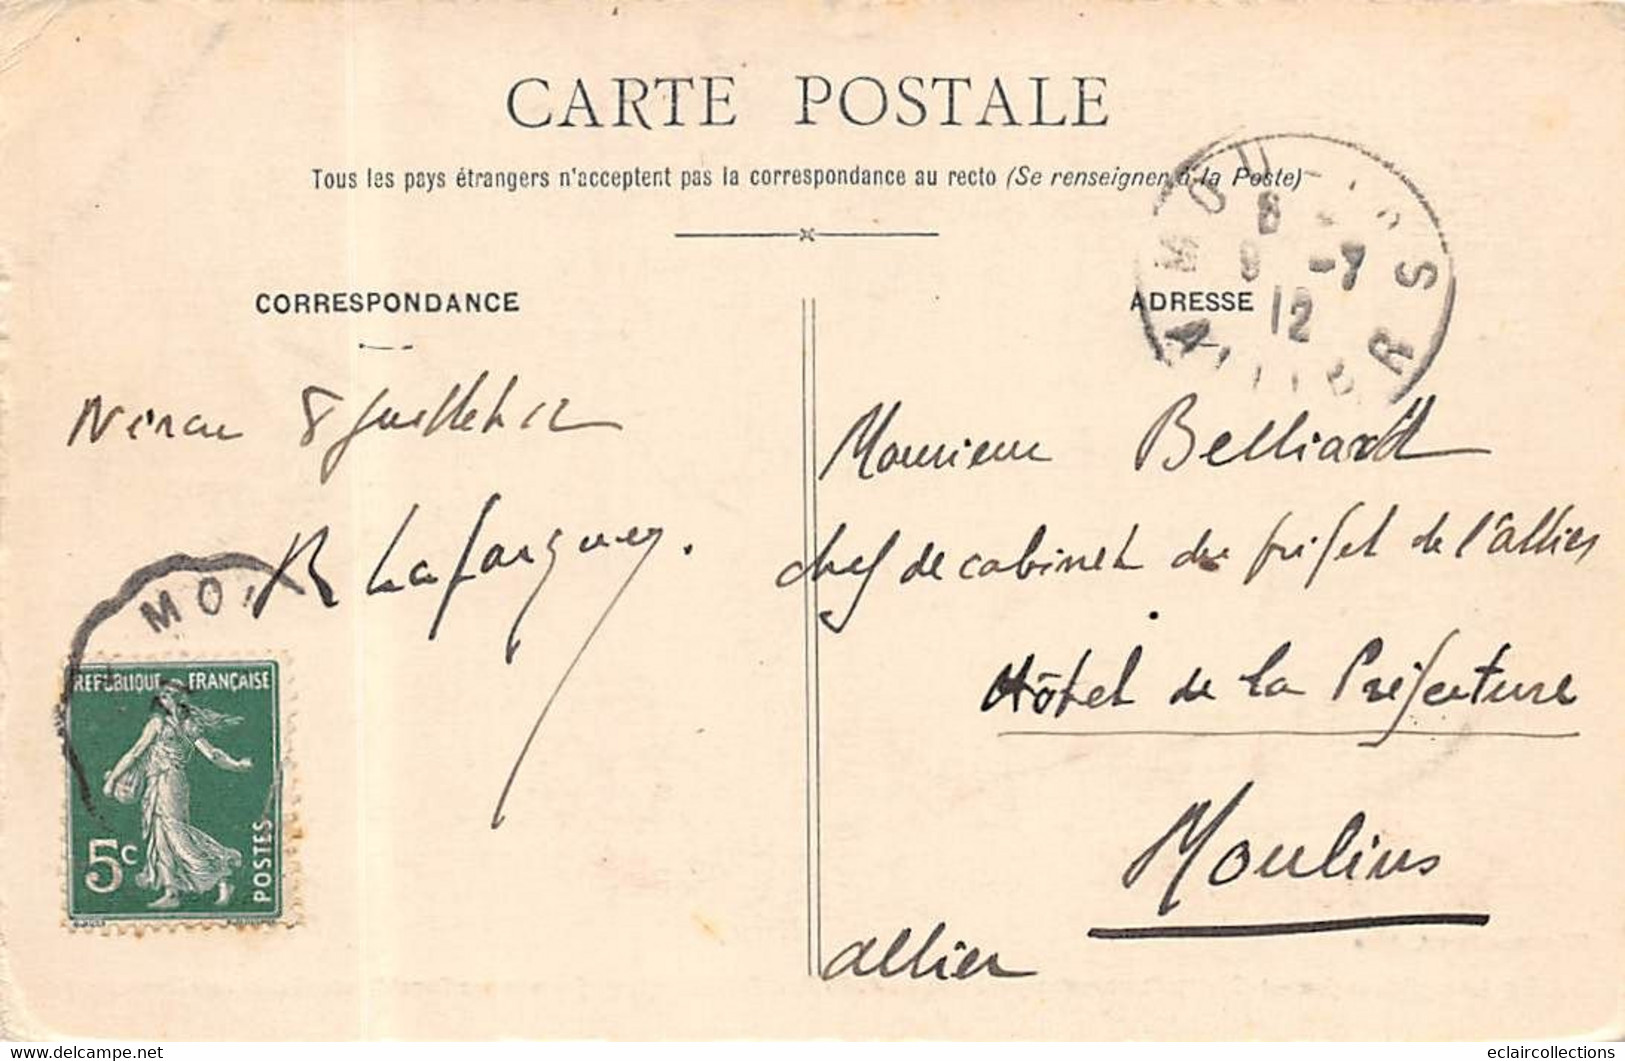 CARTE POSTALE
Tous les pays étrangers n'acceptent pas la correspondance au recto (Se renseigner à la Poste)
CORRESPONDANCE
ADRESSE
8
9 -7
12
Nérac 8 Juillet 12
R Lafargues.
Monsieur Belliard
chef de cabinet du préfet de l'allier
Hôtel de la Préfecture
Moulins
allier
MO
REPUBLIQUE FRANÇAISE
5c
POSTES
www.delcampe.net
eclaircollections